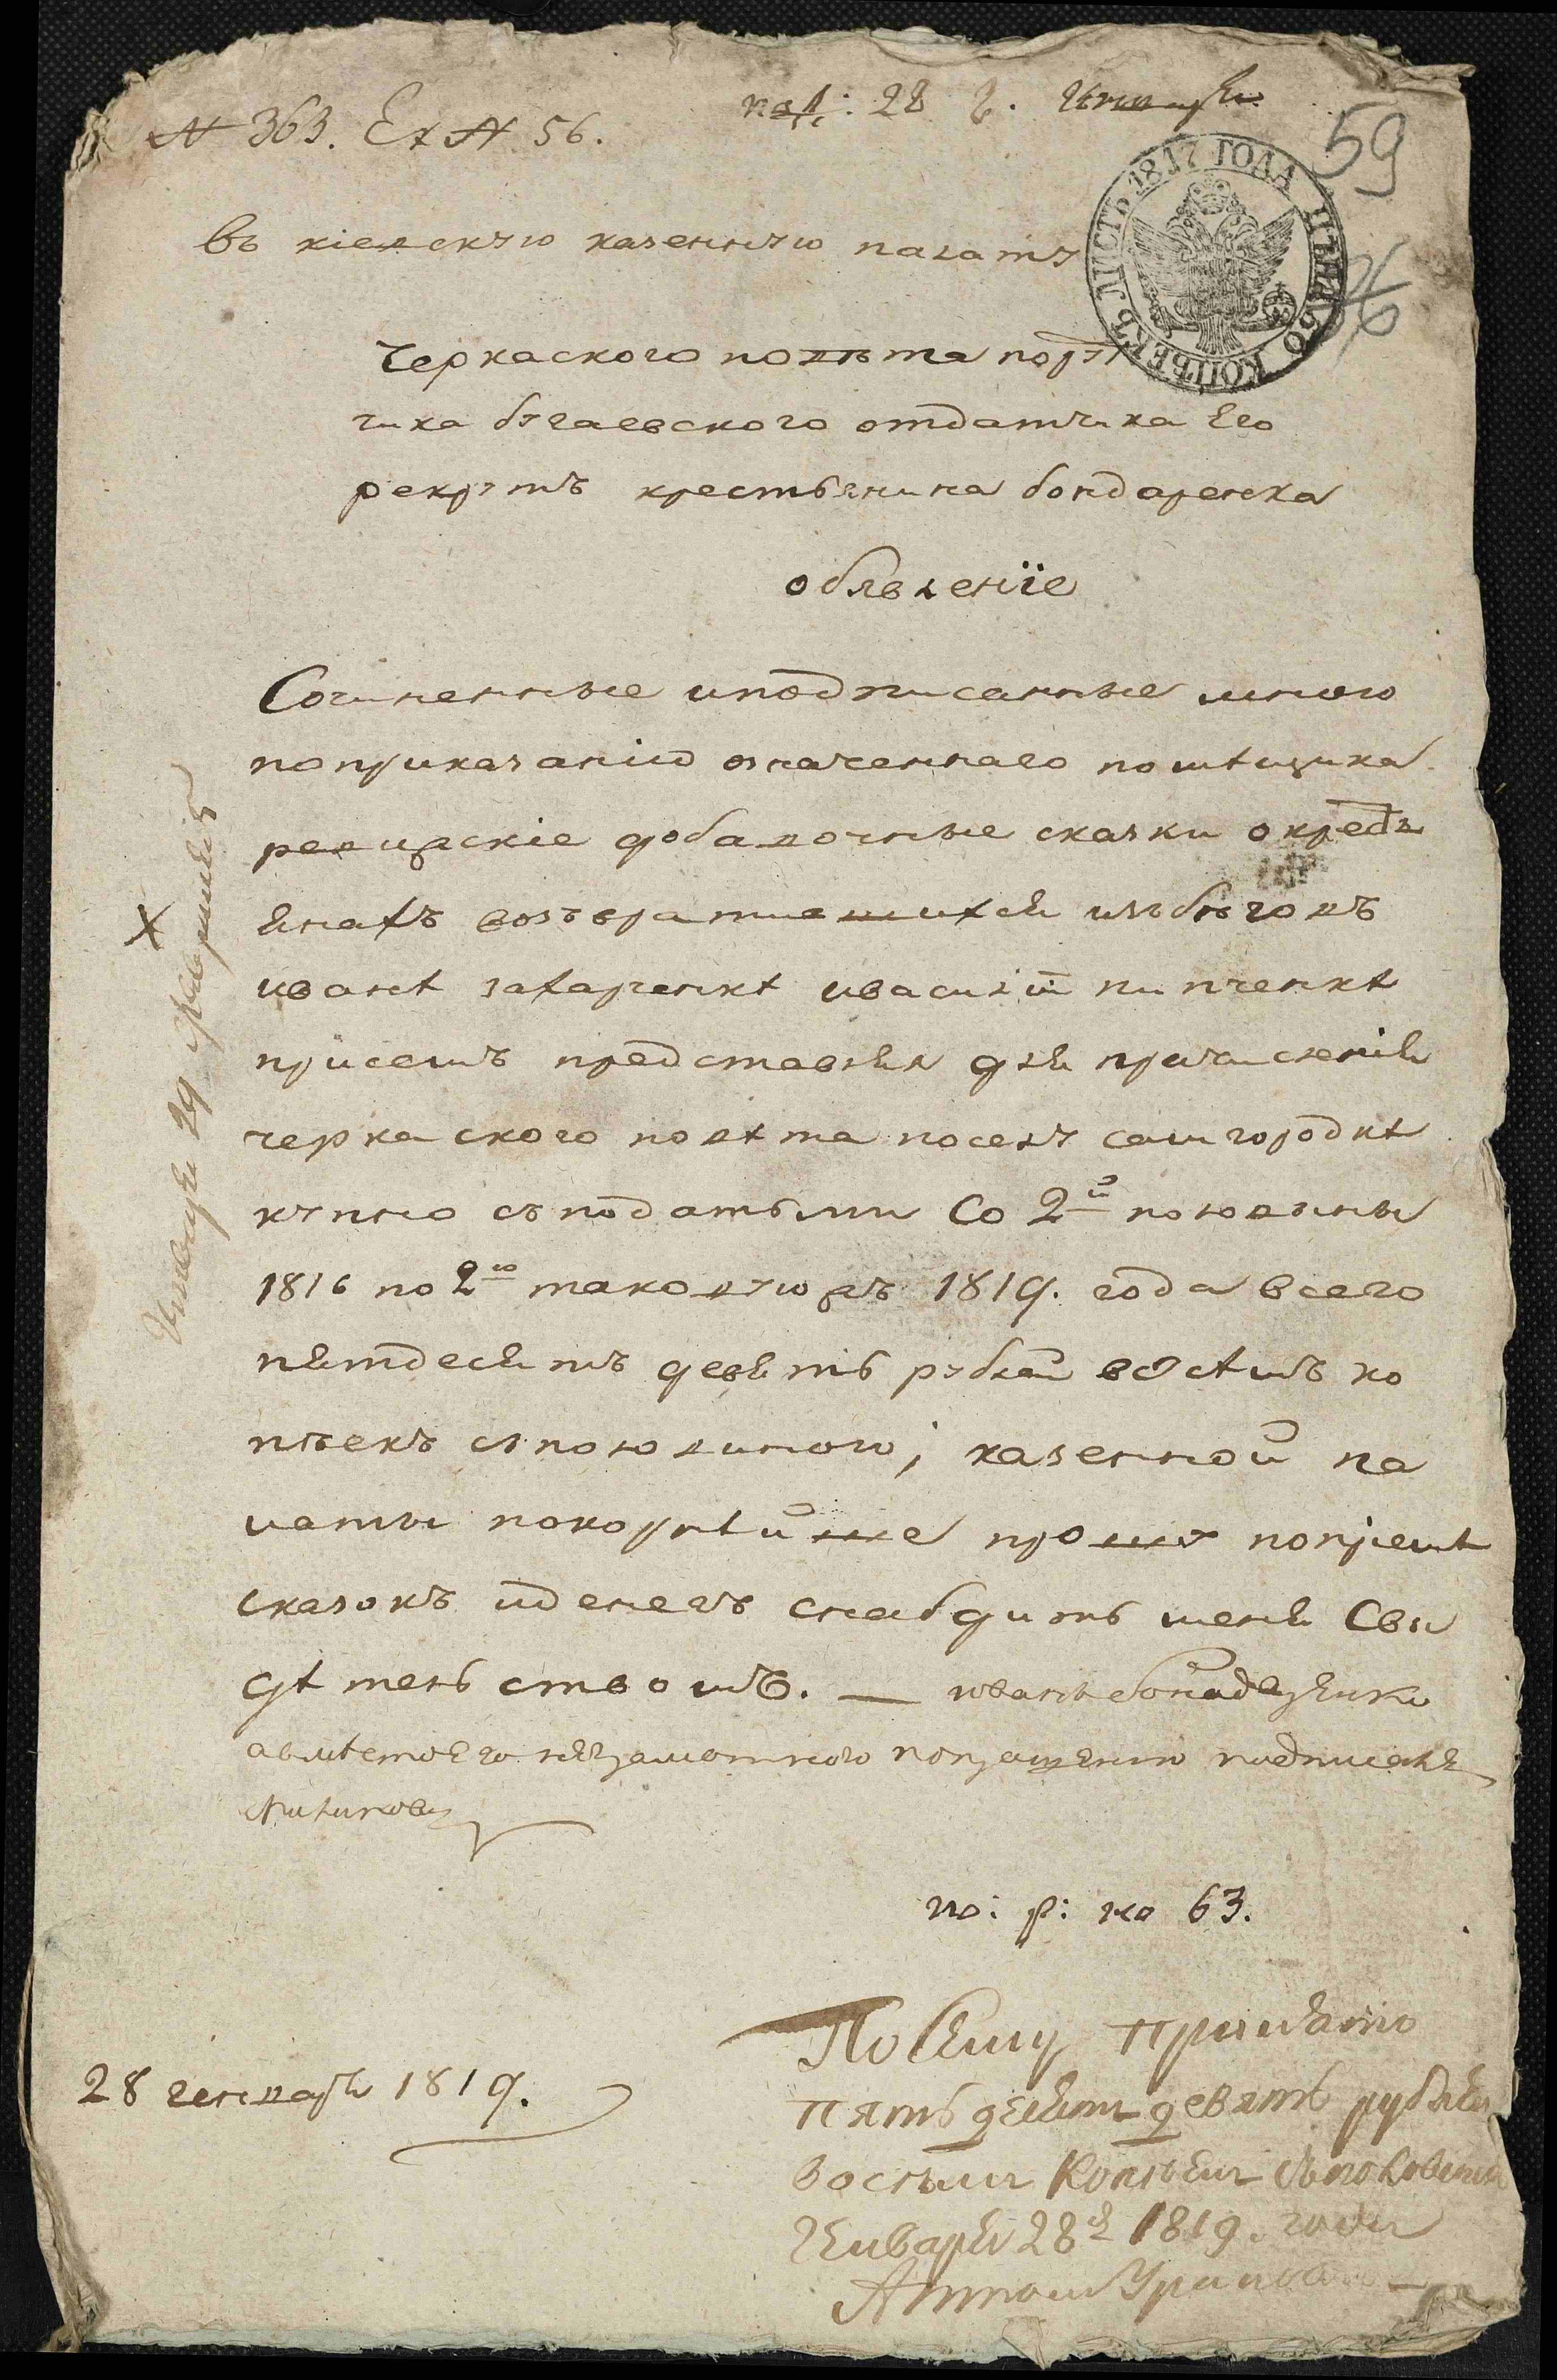 № 363. Ex № 56.
под: 28 г. Генваря
59
ЛИСТЪ 1817 ГОДА ЦѢНА 50 КОПѢЕКЪ
въ кіевскую казенную палату
Черкаского повѣта пору
чика бугаевского отдатчика Его
рекрутъ крестьянина бондаренка
обявленіе
Сочиненные иподписанные мною
поприказанію означеннаго помѣщика
ревизскіе добавочные сказки окрестья
янахъ возъвратившихся изъбѣговъ
иванѣ захаренкѣ ивасилій пипченкѣ
присемъ представляя для причисленія
черкаского повѣта поселу самгородкѣ
купно съподатьми Со 2й половины
1816 по 2ю таковуюжъ 1819. года всего
пятдесятъ девять рублей восѣмъ ко
пѣекъ споловиною; казенной па
латы покорнѣйше прошу попріемѣ
сказокъ иденегъ снабдить меня Сви
дѣтельствомъ. — иванъ бондаренко
авмѣсто его неграмотного попрошенію подписалъ
по: р: но 63.
28 генваря 1819.
По сему принято
пятьдесят девять рублей
восѣмь копѣекъ съполовиною
Генваря 28д 1819. года
Генваря 29